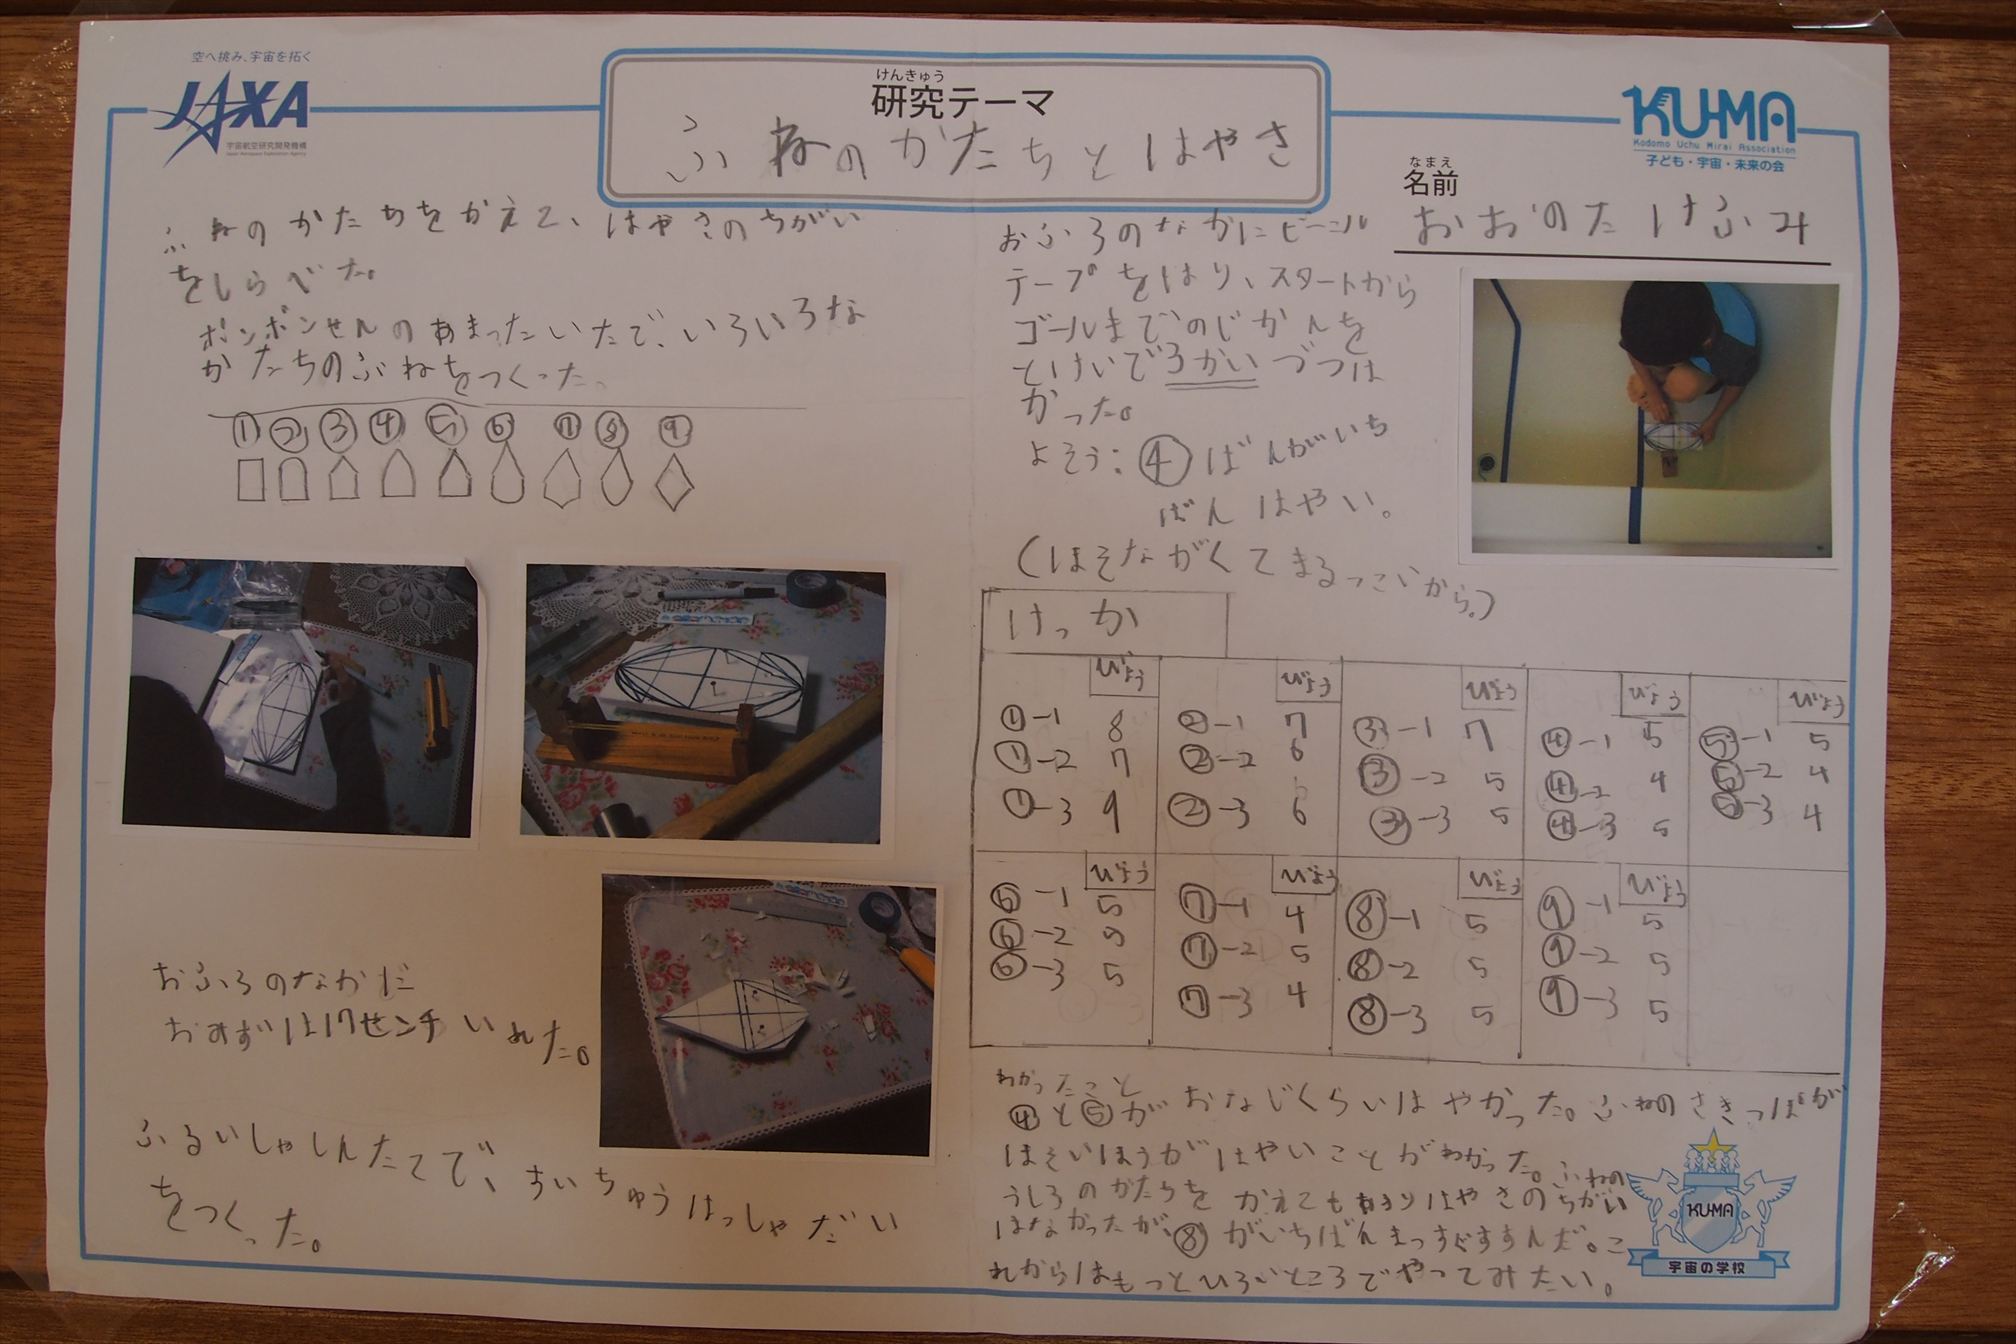 空へ挑み、宇宙を拓く
JAXA
宇宙航空研究開発機構
Japan Aerospace Exploration Agency
けんきゅう
研究テーマ
ふねのかたちとはやさ
KU-MA
Kodomo Uchu Mirai Association
子ども・宇宙・未来の会
なまえ
名前
おおのたけふみ
ふねのかたちをかえて、はやさのちがい
をしらべた。
ポンポンせんのあまったいたで、いろいろな
かたちのふねをつくった。
① ② ③ ④ ⑤ ⑥ ⑦ ⑧ ⑨
おふろのなかに
おみずは17センチいれた。
ふるいしゃしんたてで、すいちゅうはっしゃだい
をつくった。
おふろのなかにビニール
テープをはり、スタートから
ゴールまでのじかんを
とけいで3かいづつは
かった。
よそう:④ばんがいち
ばんはやい。
(ほそながくてまるっこいから。)
けっか
びょう びょう びょう びょう びょう
①-1 8 ②-1 7 ③-1 7 ④-1 5 ⑤-1 5
①-2 7 ②-2 6 ③-2 5 ④-2 4 ⑤-2 4
①-3 9 ②-3 6 ③-3 5 ④-3 5 ⑤-3 4
びょう びょう びょう びょう
⑥-1 5 ⑦-1 4 ⑧-1 5 ⑨-1 5
⑥-2 ⑦-2 5 ⑧-2 5 ⑨-2 5
⑥-3 5 ⑦-3 4 ⑧-3 5 ⑨-3 5
わかったこと
④と⑤がおなじくらいはやかった。ふねのさきっぽが
ほそいほうがはやいことがわかった。ふねの
うしろのかたちをかえてもあまりはやさのちがい
はなかったが、⑧がいちばんまっすぐすすんだ。こ
れからはもっとひろいところでやってみたい。
KU-MA
宇宙の学校